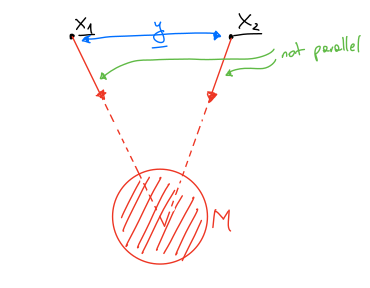 x₁ y x₂
not parallel
M